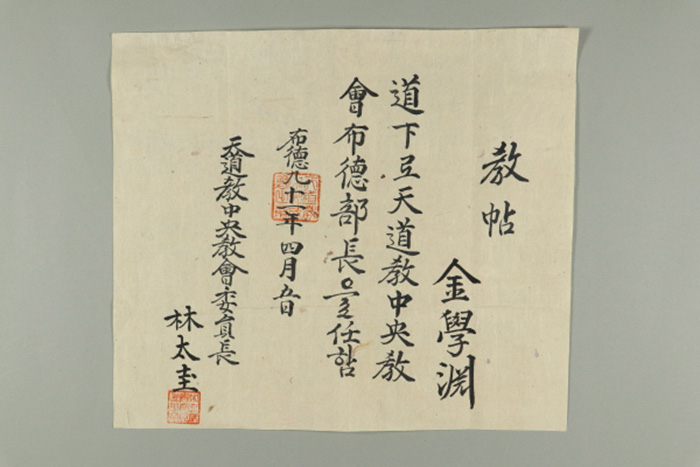 教帖
金學淵
道下로天道教中央教
會布德部長으로任함
布德九十一年四月五日
天道教中央教會委員長
林太圭